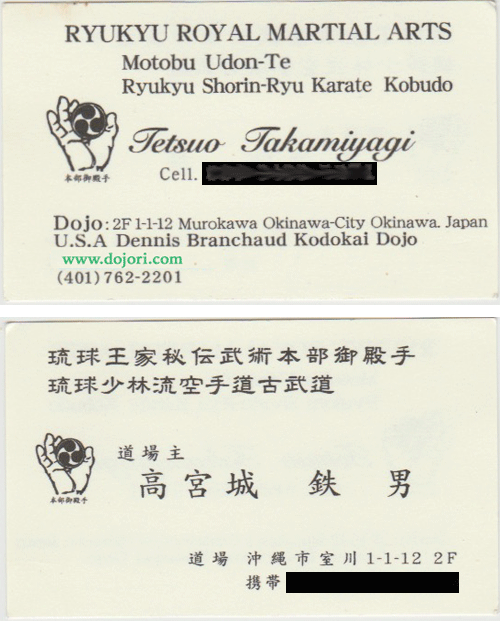 RYUKYU ROYAL MARTIAL ARTS
Motobu Udon-Te
Ryukyu Shorin-Ryu Karate Kobudo
本部御殿手
Tetsuo Takamiyagi
Cell.
Dojo: 2F 1-1-12 Murokawa Okinawa-City Okinawa. Japan
U.S.A Dennis Branchaud Kodokai Dojo
www.dojori.com
(401) 762-2201
琉球王家秘伝武術本部御殿手
琉球少林流空手道古武道
本部御殿手
道場主
高宮城 鉄 男
道場 沖縄市室川 1-1-12 2F
携帯